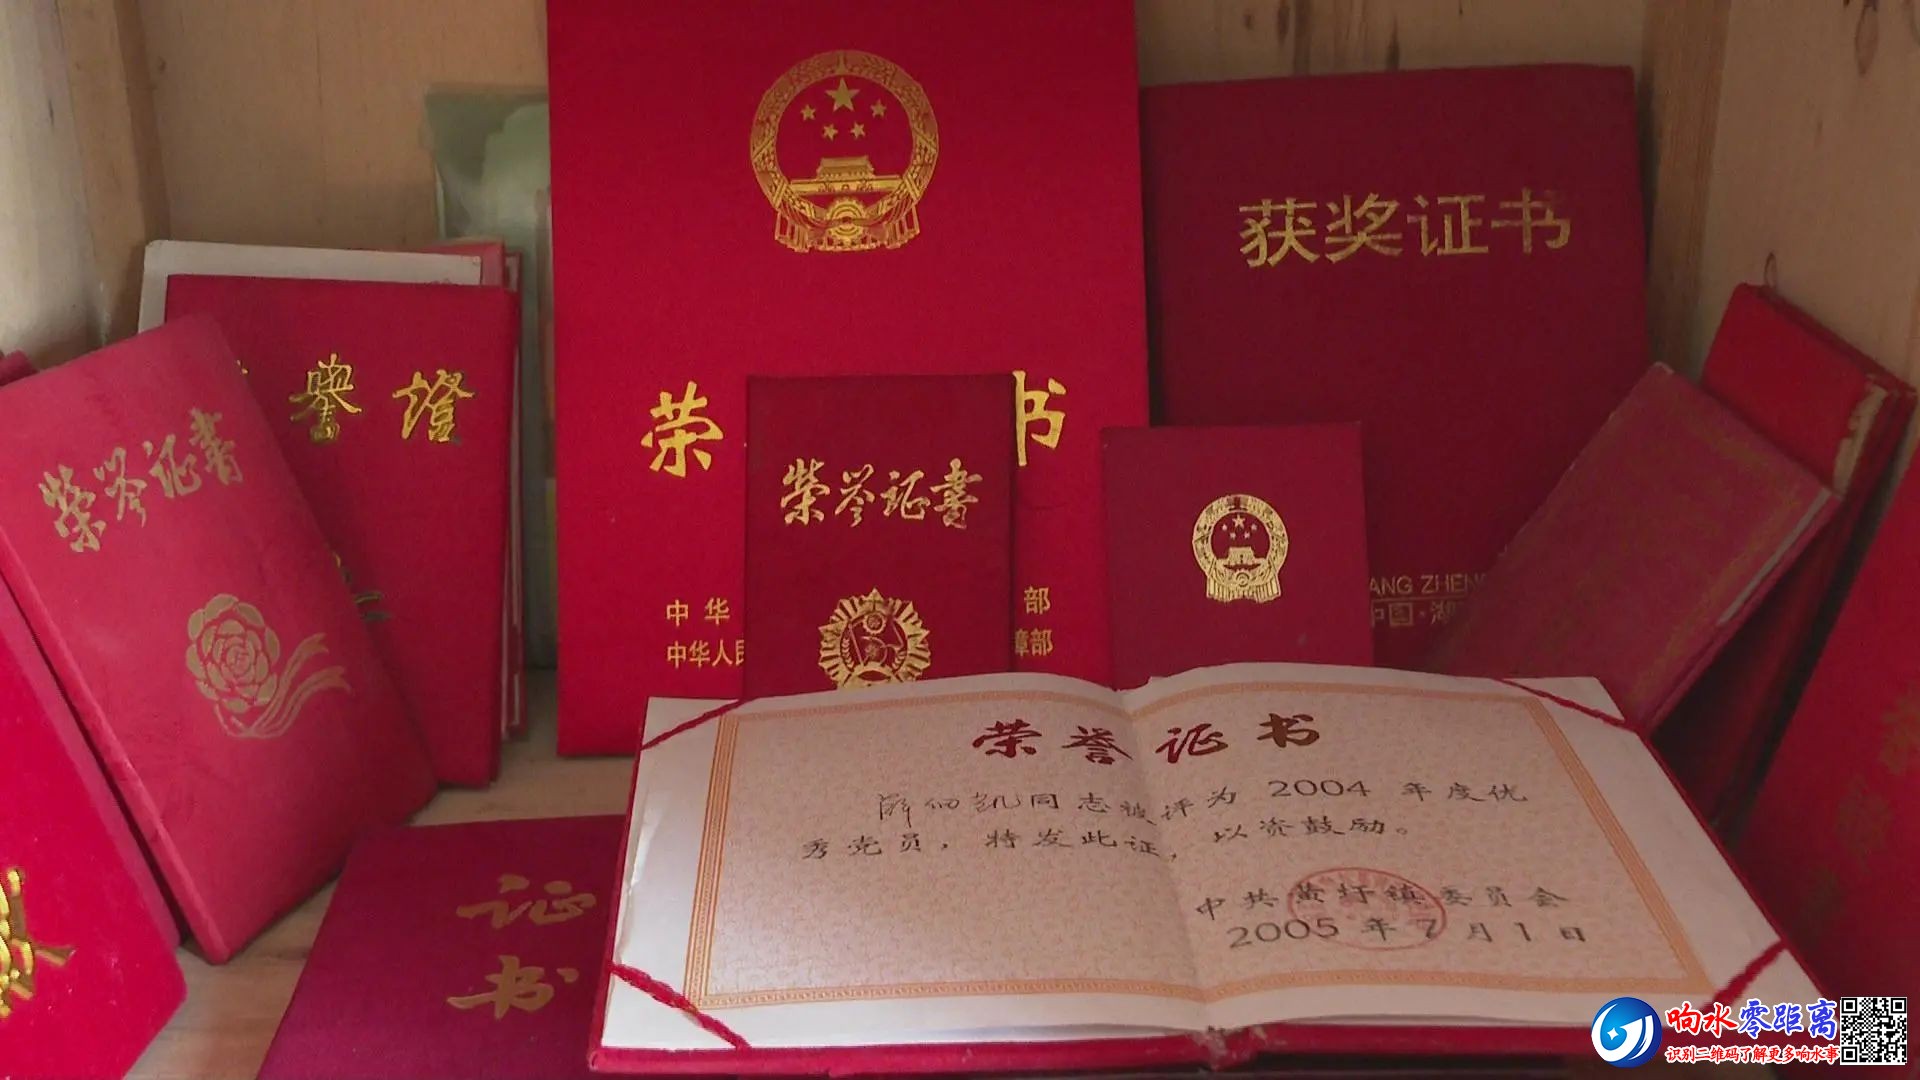 获奖证书
荣 书
誉 證
荣誉证書
榮誉证書
中 华 部
中华人民 障部
ANG ZHENG
中国·湖
荣誉证书
同志被评为 2004 年度优
秀党员，特发此证，以资鼓励。
中共黄圩镇委员会
2005 年 7 月 1 日
证
书
响水零距离
识别二维码了解更多响水事